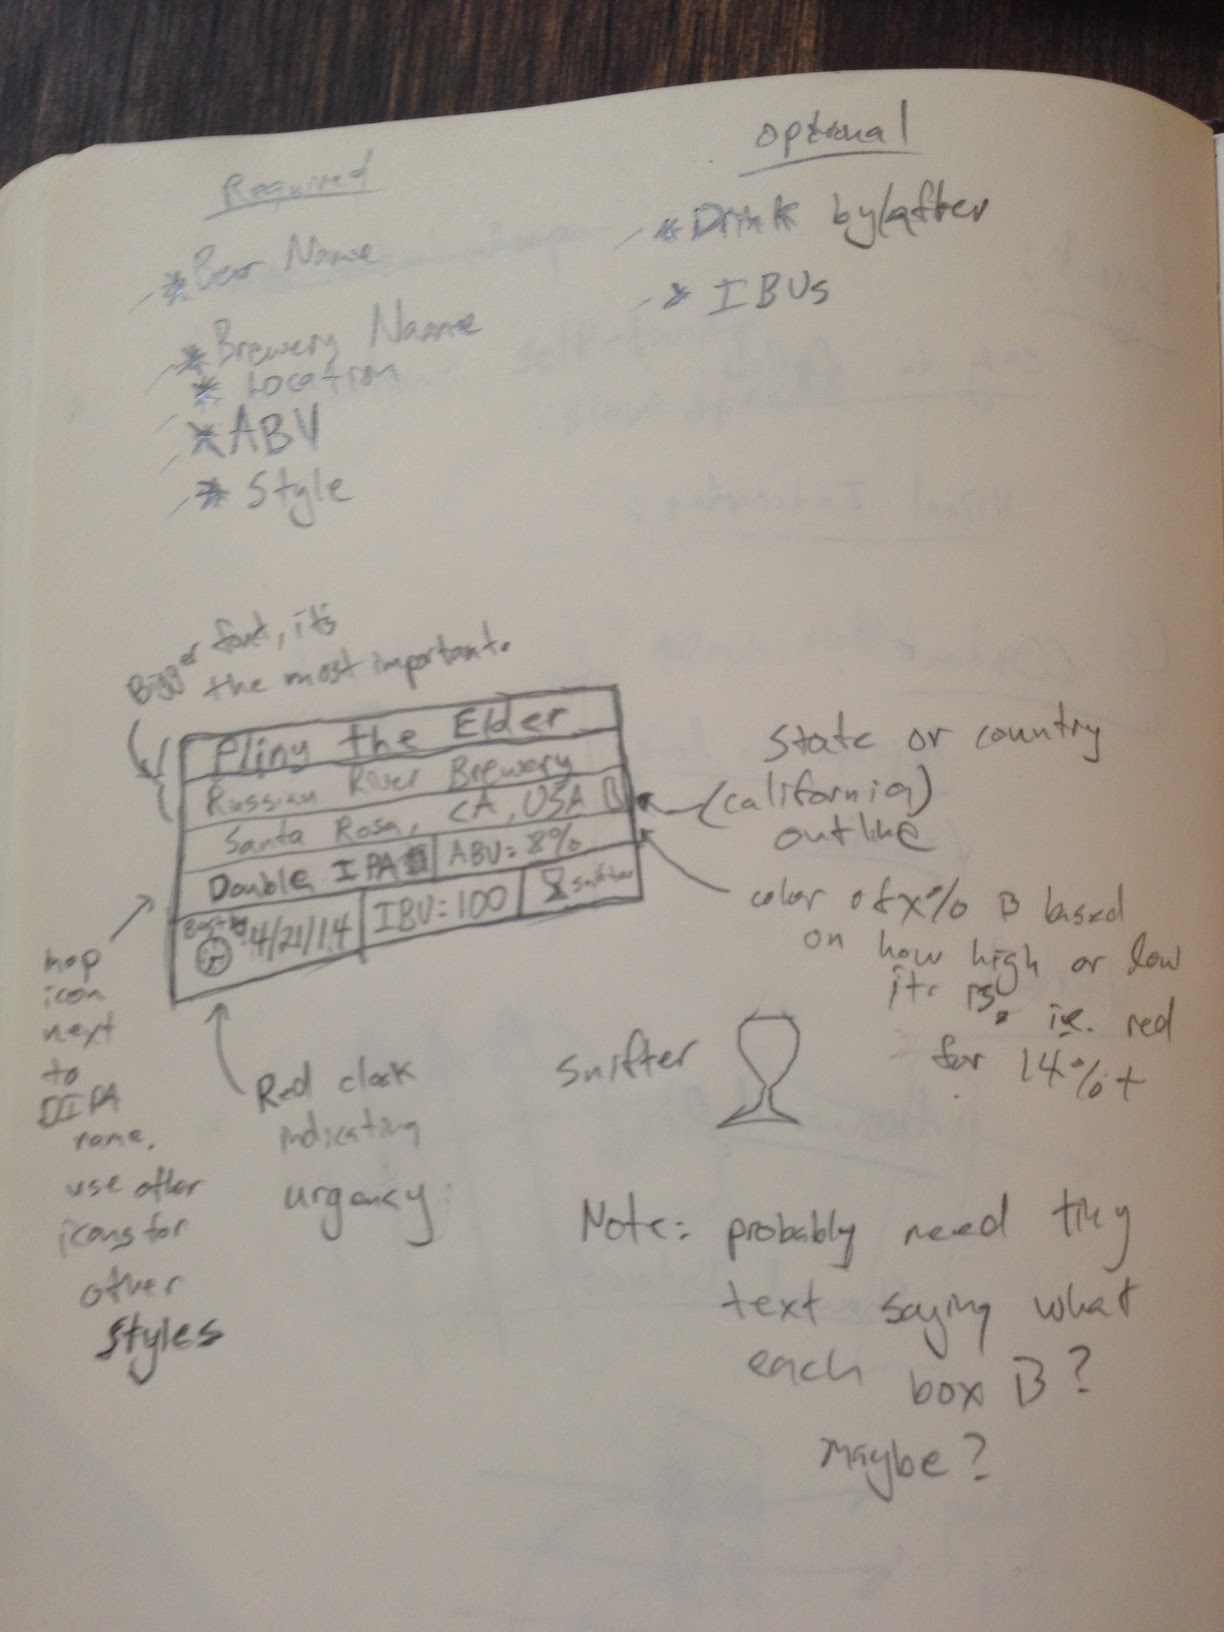 Required
* Beer Name
* Brewery Name
* Location
* ABV
* Style
Optional
* Drink by/after
* IBUs
Bigger font, it's
the most important.
Pliny the Elder
Russian River Brewery
Santa Rosa, CA, USA
Double IPA
ABV = 8%
Best by
4/21/14
IBU: 100
snifter
State or country
(california)
outline
color of x% is based
on how high or low
its is. ie. red
for 14%+
hop
icon
next
to
DIPA
name.
use other
icons for
other
styles
Red clock
indicating
urgency
Snifter
Note: probably need tiny
text saying what
each box is?
Maybe?